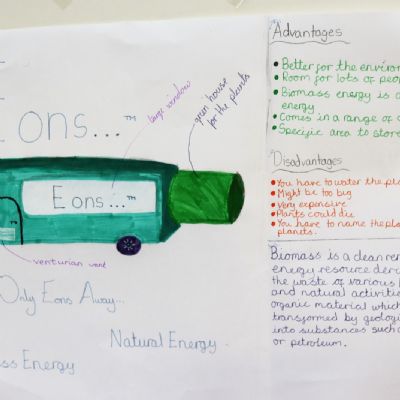 Eons...™
large window
green house
for the plants
Eons...™
venturian vent
Only Eons Away...
Natural Energy.
Energy
Advantages
• Better for the
• Room for lots of
• Biomass energy is
energy
• Comes in a range of
• Specific area to store
Disadvantages
• You have to water the
• Might be too big
• Very expensive
• Plants could die
• You have to name the
planets.
Biomass is a clean
energy resource
the waste of various
and natural
organic material which
transformed by
into substances such
or petroleum.